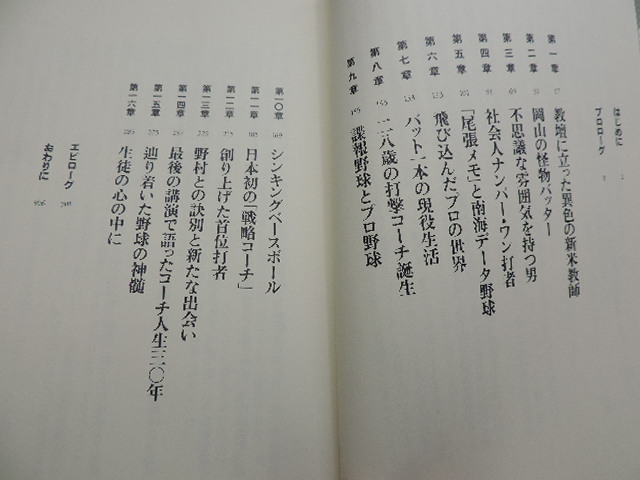 はじめに
プロローグ
第一章 教壇に立った異色の新米教師
第二章 岡山の怪物バッター
第三章 不思議な雰囲気を持つ男
第四章 社会人ナンバー・ワン打者
第五章 「尾張メモ」と南海データ野球
第六章 飛び込んだプロの世界
第七章 バット一本の現役生活
第八章 二八歳の打撃コーチ誕生
第九章 諜報野球とプロ野球
第一〇章 169 シンキングベースボール
第一一章 日本初の「戦略コーチ」
第一二章 創り上げた首位打者
第一三章 野村との訣別と新たな出会い
第一四章 最後の講演で語ったコーチ人生三〇年
第一五章 辿り着いた野球の神髄
第一六章 生徒の心の中に
エピローグ
おわりに